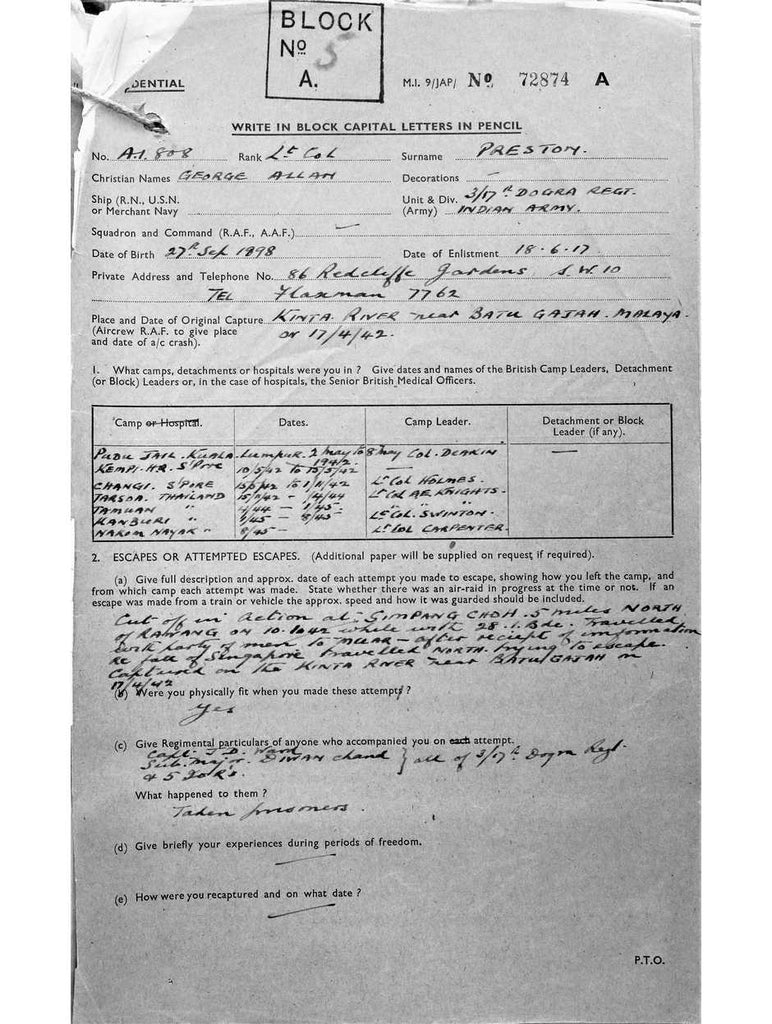 BLOCK
No. 5
A.
DENTIAL
M.I. 9/JAP/ No 72874 A
WRITE IN BLOCK CAPITAL LETTERS IN PENCIL
No. A.I. 808 Rank Lt Col Surname PRESTON.
Christian Names GEORGE ALLAN Decorations —
Ship (R.N., U.S.N. or Merchant Navy
Unit & Div. (Army) 3/17th DOGRA REGT. INDIAN ARMY.
Squadron and Command (R.A.F., A.A.F.) —
Date of Birth 27th Sep 1898 Date of Enlistment 18-6-17
Private Address and Telephone No. 86 Redcliffe Gardens S.W.10
TEL Flaxman 7762
Place and Date of Original Capture KINTA RIVER near BATU GAJAH. MALAYA.
(Aircrew R.A.F. to give place on 17/4/42.
and date of a/c crash).
1. What camps, detachments or hospitals were you in ? Give dates and names of the British Camp Leaders, Detachment
(or Block) Leaders or, in the case of hospitals, the Senior British Medical Officers.
Camp or Hospital. Dates. Camp Leader. Detachment or Block Leader (if any).
PUDU JAIL. KUALA Lumpur. 2 May to 8 May 1942. Col. DEAKIN —
KEMPI. HQ. S'PORE 10/5/42 TO 15/5/42 —
CHANGI. S'PORE 15/5/42 to 1/11/42 Lt Col HOLMES.
TARSOA. THAILAND 15/11/42 - 1/4/44 Lt Col A.E. KNIGHTS.
TAMUAN " 4/44 - 1/45. " "
KANBURI " 1/45 - 8/45 Lt. Col. SWINTON.
NAKOM NAYAK " 8/45 - Lt Col CARPENTER.
2. ESCAPES OR ATTEMPTED ESCAPES. (Additional paper will be supplied on request if required).
(a) Give full description and approx. date of each attempt you made to escape, showing how you left the camp, and
from which camp each attempt was made. State whether there was an air-raid in progress at the time or not. If an
escape was made from a train or vehicle the approx. speed and how it was guarded should be included.
Cut off in action at SIMPANG CHOH. 5 miles NORTH
of RAWANG on 10.1.42 while with 28.I.Bde. Travelled
with party of men to MUAR - after reciept of information
re fall of Singapore travelled NORTH trying to escape.
Captured on the KINTA RIVER near BATU GAJAH on
17/4/42
(b) Were you physically fit when you made these attempts ?
Yes
(c) Give Regimental particulars of anyone who accompanied you on each attempt.
Capt. J.D. Ward
Sub. Major. DIWAN Chand } all of 3/17th Dogra Regt.
& 5 I.O.R's.
What happened to them ?
Taken prisoners.
(d) Give briefly your experiences during periods of freedom.
—
(e) How were you recaptured and on what date ?
—
P.T.O.